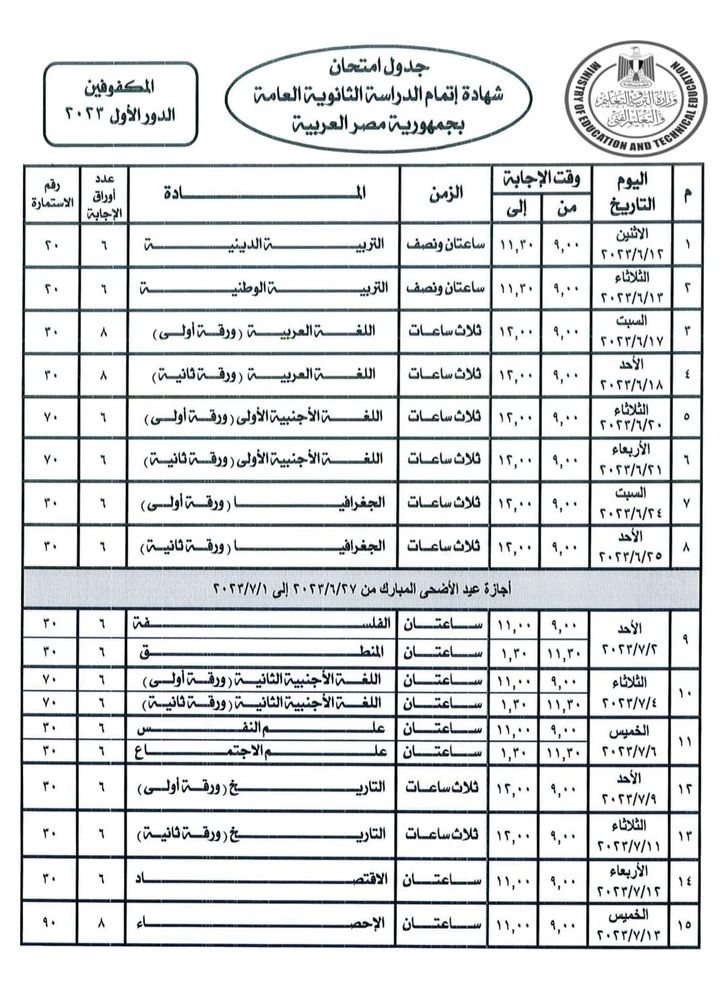 جدول امتحان
شهادة إتمام الدراسة الثانوية العامة
بجمهورية مصر العربية
المكفوفين
الدور الأول ٢٠٢٣
وزارة التربية والتعليم
والتعليم الفني
MINISTRY OF EDUCATION AND TECHNICAL EDUCATION
م | اليوم التاريخ | وقت الإجابة من | إلى | الزمن | المادة | عدد أوراق الإجابة | رقم الاستمارة
١ | الاثنين ٢٠٢٣/٦/١٢ | ٩,٠٠ | ١١,٣٠ | ساعتان ونصف | التربية الدينية | ٦ | ٢٠
٢ | الثلاثاء ٢٠٢٣/٦/١٣ | ٩,٠٠ | ١١,٣٠ | ساعتان ونصف | التربية الوطنية | ٦ | ٢٠
٣ | السبت ٢٠٢٣/٦/١٧ | ٩,٠٠ | ١٢,٠٠ | ثلاث ساعات | اللغة العربية (ورقة أولى) | ٨ | ٣٠
٤ | الأحد ٢٠٢٣/٦/١٨ | ٩,٠٠ | ١٢,٠٠ | ثلاث ساعات | اللغة العربية (ورقة ثانية) | ٨ | ٣٠
٥ | الثلاثاء ٢٠٢٣/٦/٢٠ | ٩,٠٠ | ١٢,٠٠ | ثلاث ساعات | اللغة الأجنبية الأولى (ورقة أولى) | ٦ | ٧٠
٦ | الأربعاء ٢٠٢٣/٦/٢١ | ٩,٠٠ | ١٢,٠٠ | ثلاث ساعات | اللغة الأجنبية الأولى (ورقة ثانية) | ٦ | ٧٠
٧ | السبت ٢٠٢٣/٦/٢٤ | ٩,٠٠ | ١٢,٠٠ | ثلاث ساعات | الجغرافيا (ورقة أولى) | ٦ | ٣٠
٨ | الأحد ٢٠٢٣/٦/٢٥ | ٩,٠٠ | ١٢,٠٠ | ثلاث ساعات | الجغرافيا (ورقة ثانية) | ٦ | ٣٠
أجازة عيد الأضحى المبارك من ٢٠٢٣/٦/٢٧ إلى ٢٠٢٣/٧/١
٩ | الأحد ٢٠٢٣/٧/٢ | ٩,٠٠ | ١١,٠٠ | ساعتان | الفلسفة | ٦ | ٣٠
١١,٣٠ | ١,٣٠ | ساعتان | المنطق | ٦ | ٣٠
١٠ | الثلاثاء ٢٠٢٣/٧/٤ | ٩,٠٠ | ١١,٠٠ | ساعتان | اللغة الأجنبية الثانية (ورقة أولى) | ٦ | ٧٠
١١,٣٠ | ١,٣٠ | ساعتان | اللغة الأجنبية الثانية (ورقة ثانية) | ٦ | ٧٠
١١ | الخميس ٢٠٢٣/٧/٦ | ٩,٠٠ | ١١,٠٠ | ساعتان | علم النفس | ٦ | ٣٠
١١,٣٠ | ١,٣٠ | ساعتان | علم الاجتماع | ٦ | ٣٠
١٢ | الأحد ٢٠٢٣/٧/٩ | ٩,٠٠ | ١٢,٠٠ | ثلاث ساعات | التاريخ (ورقة أولى) | ٦ | ٣٠
١٣ | الثلاثاء ٢٠٢٣/٧/١١ | ٩,٠٠ | ١٢,٠٠ | ثلاث ساعات | التاريخ (ورقة ثانية) | ٦ | ٣٠
١٤ | الأربعاء ٢٠٢٣/٧/١٢ | ٩,٠٠ | ١١,٠٠ | ساعتان | الاقتصاد | ٦ | ٣٠
١٥ | الخميس ٢٠٢٣/٧/١٣ | ٩,٠٠ | ١١,٠٠ | ساعتان | الإحصاء | ٨ | ٩٠